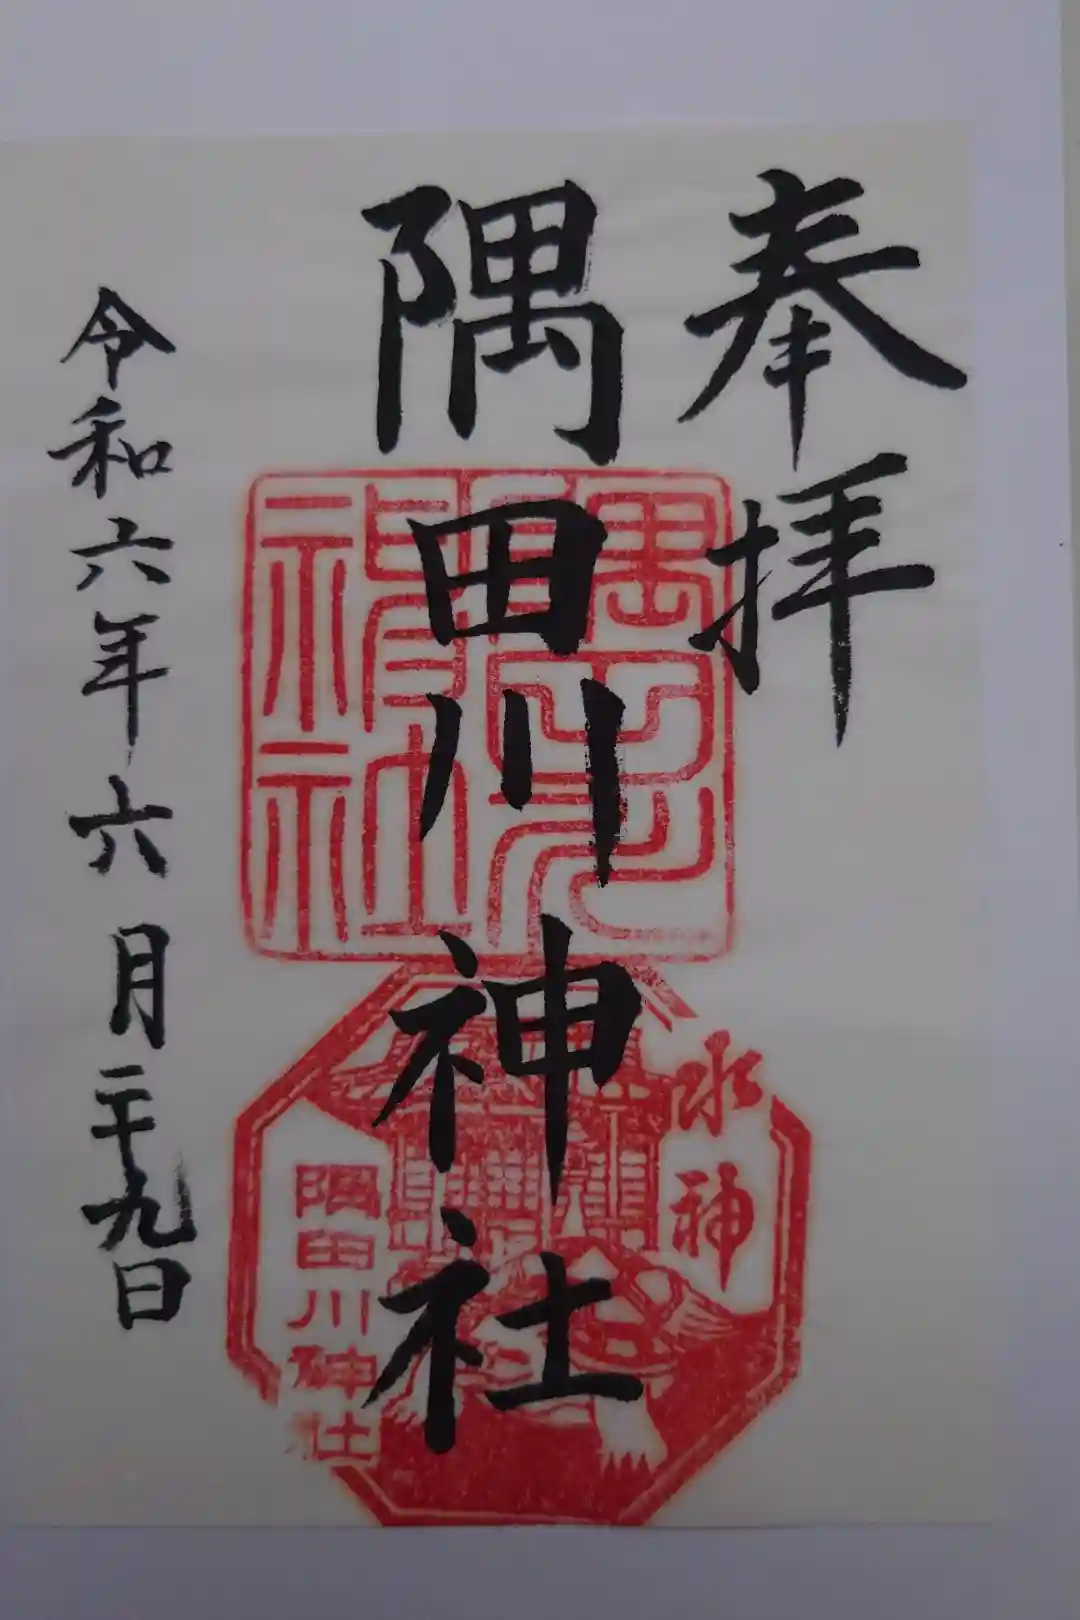 奉拝
隅田川神社
水神
隅田川神社
令和六年六月二十九日